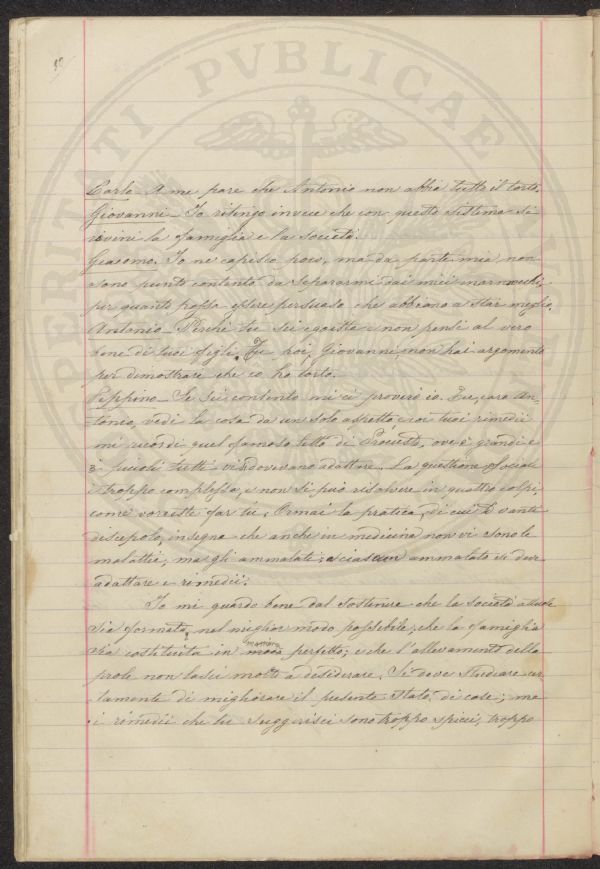 PERITATI PVBLICAE
10
Carlo - A me pare che Antonio non abbia tutto il torto.
Giovanni - Io ritengo invece che con questo sistema si
rovini la famiglia e la società.
Giacomo. Io ne capisco poco, ma da parte mia non
sono punto contento da separarmi dai miei marmocchi,
per quanto possa essere persuaso che abbiano a star meglio.
Antonio - Perchè tu sei egoista e non pensi al vero
bene di tuoi figli. Tu poi, Giovanni non hai argomento
per dimostrare che io ho torto.
Peppino - Se sei contento mi ci proverò io. Tu, caro An-
tonio, vedi la cosa da un solo aspetto e coi tuoi rimedii
mi ricordi quel famoso letto di Procuste, ove e grandi e
piccoli tutti vi si dovevano adattare. La questione sociale
è troppo complessa, e non si può risolvere in quattro colpi,
come vorresti far tu. Ormai la pratica, di cui ti vanti
discepolo, insegna che anche in medicina non vi sono le
malattie, ma gli ammalati; a ciascun ammalato si deve
adattare i rimedii.
Io mi guardo bene dal sostenere che la società attuale
sia formata nel miglior modo possibile, che la famiglia
maniera
sia costituita in modo perfetto; e che l'allevamento della
prole non lasci molto a desiderare. Si deve studiare cer-
tamente di migliorare il presente stato di cose; ma
i rimedii che tu suggerisci sono troppo spicci, troppo